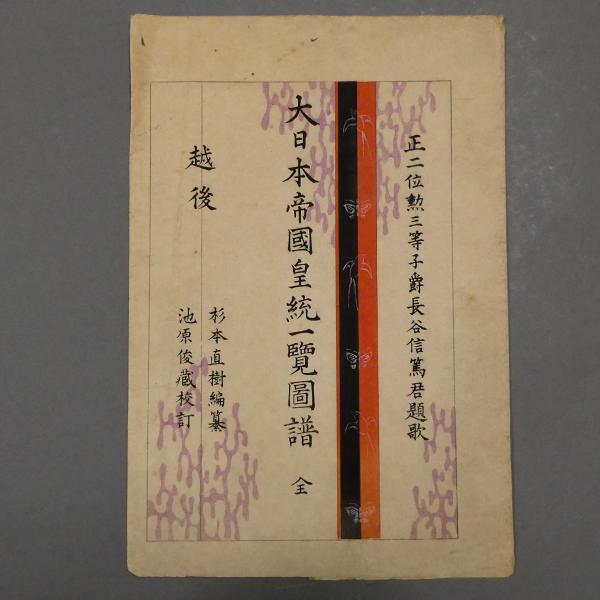 正二位勲三等子爵長谷信篤君題歌
大日本帝國皇統一覽圖譜 全
越後
杉本直樹編纂
池原俊藏校訂